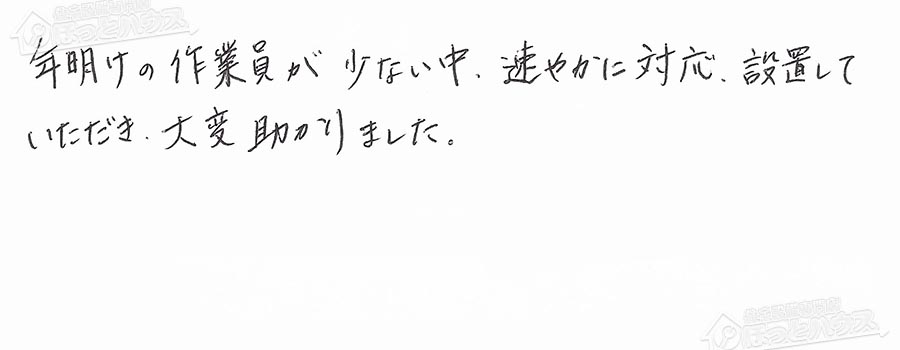 年明けの作業員が少ない中、速やかに対応、設置して
いただき、大変助かりました。
ほっとハウス
ほっとハウス